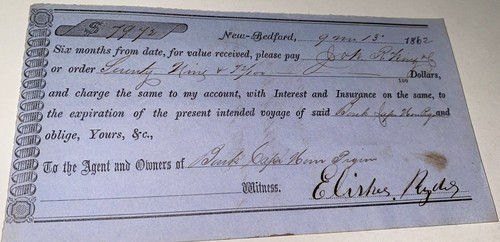 $ 79 72
New-Bedford, 9 mo 15 1862
Six months from date, for value received, please pay
or order Seventy Nine & 72/100 Dollars,
and charge the same to my account, with Interest and Insurance on the same, to
the expiration of the present intended voyage of said Bark Cape Horn Pigeon and
oblige, Yours, &c.,
To the Agent and Owners of Bark Cape Horn Pigeon
Witness. Elisha Ryder